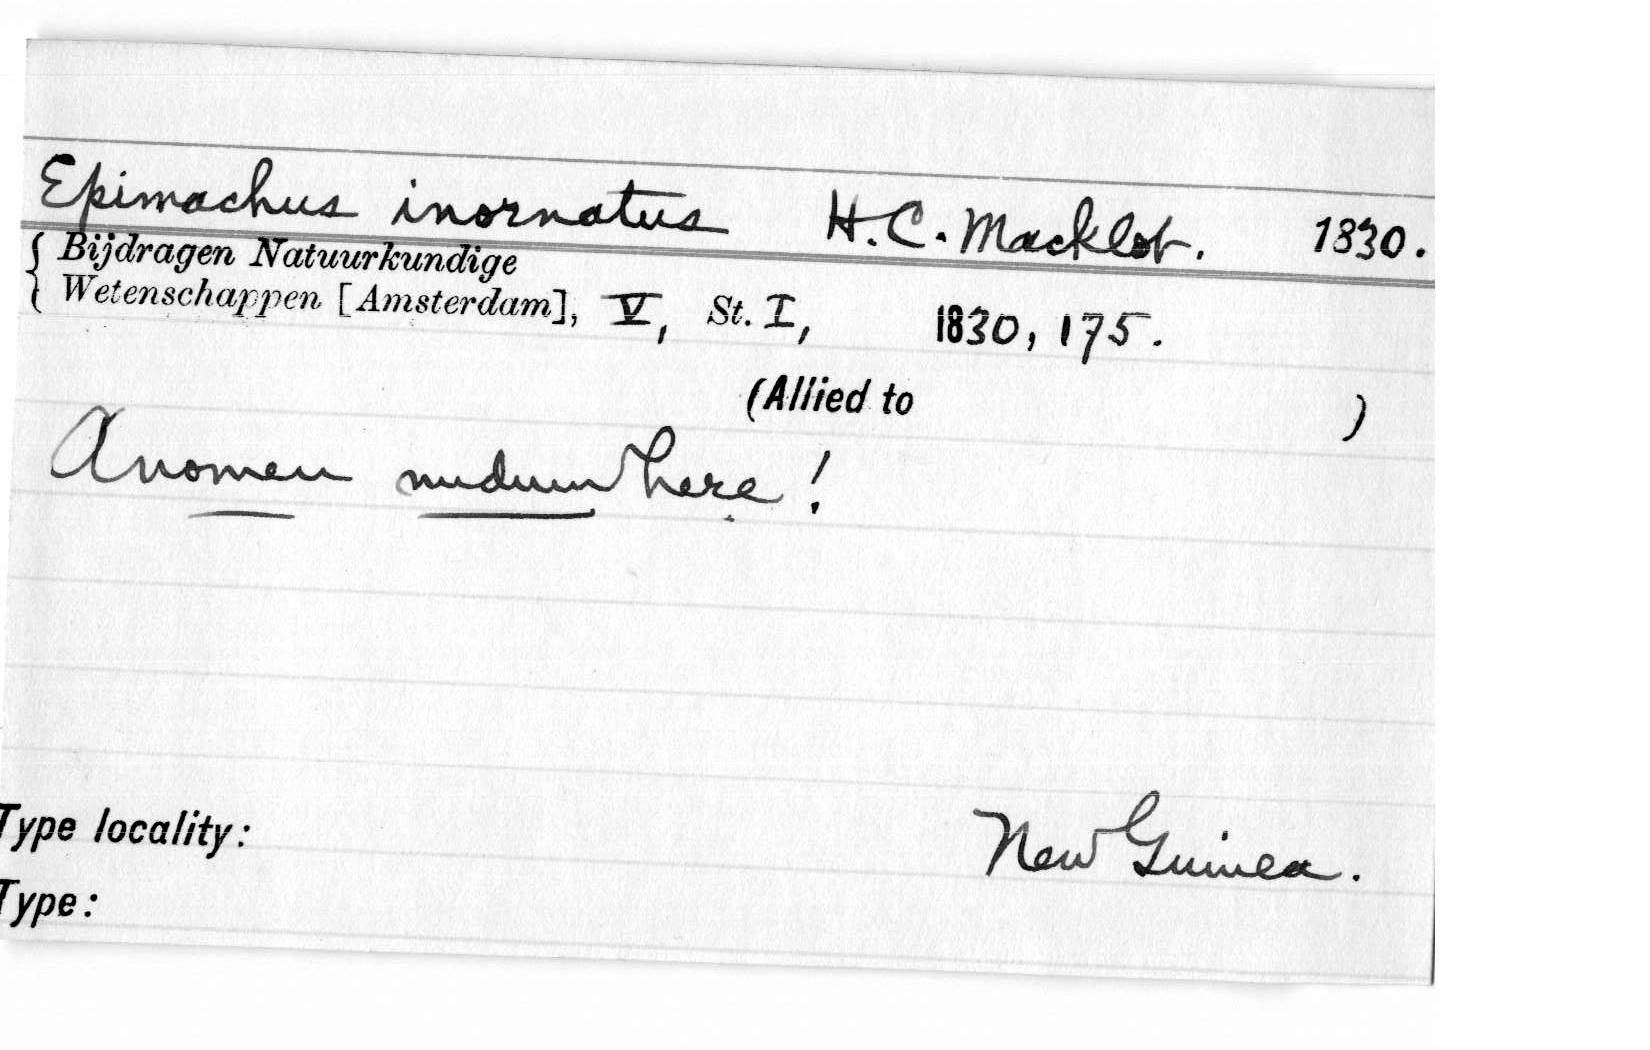 Epimachus inornatus H.C. Macklot. 1830.
Bijdragen Natuurkundige
Wetenschappen [Amsterdam], V, St. I, 1830, 175.
(Allied to )
A nomen nudum here!
Type locality: New Guinea.
Type: